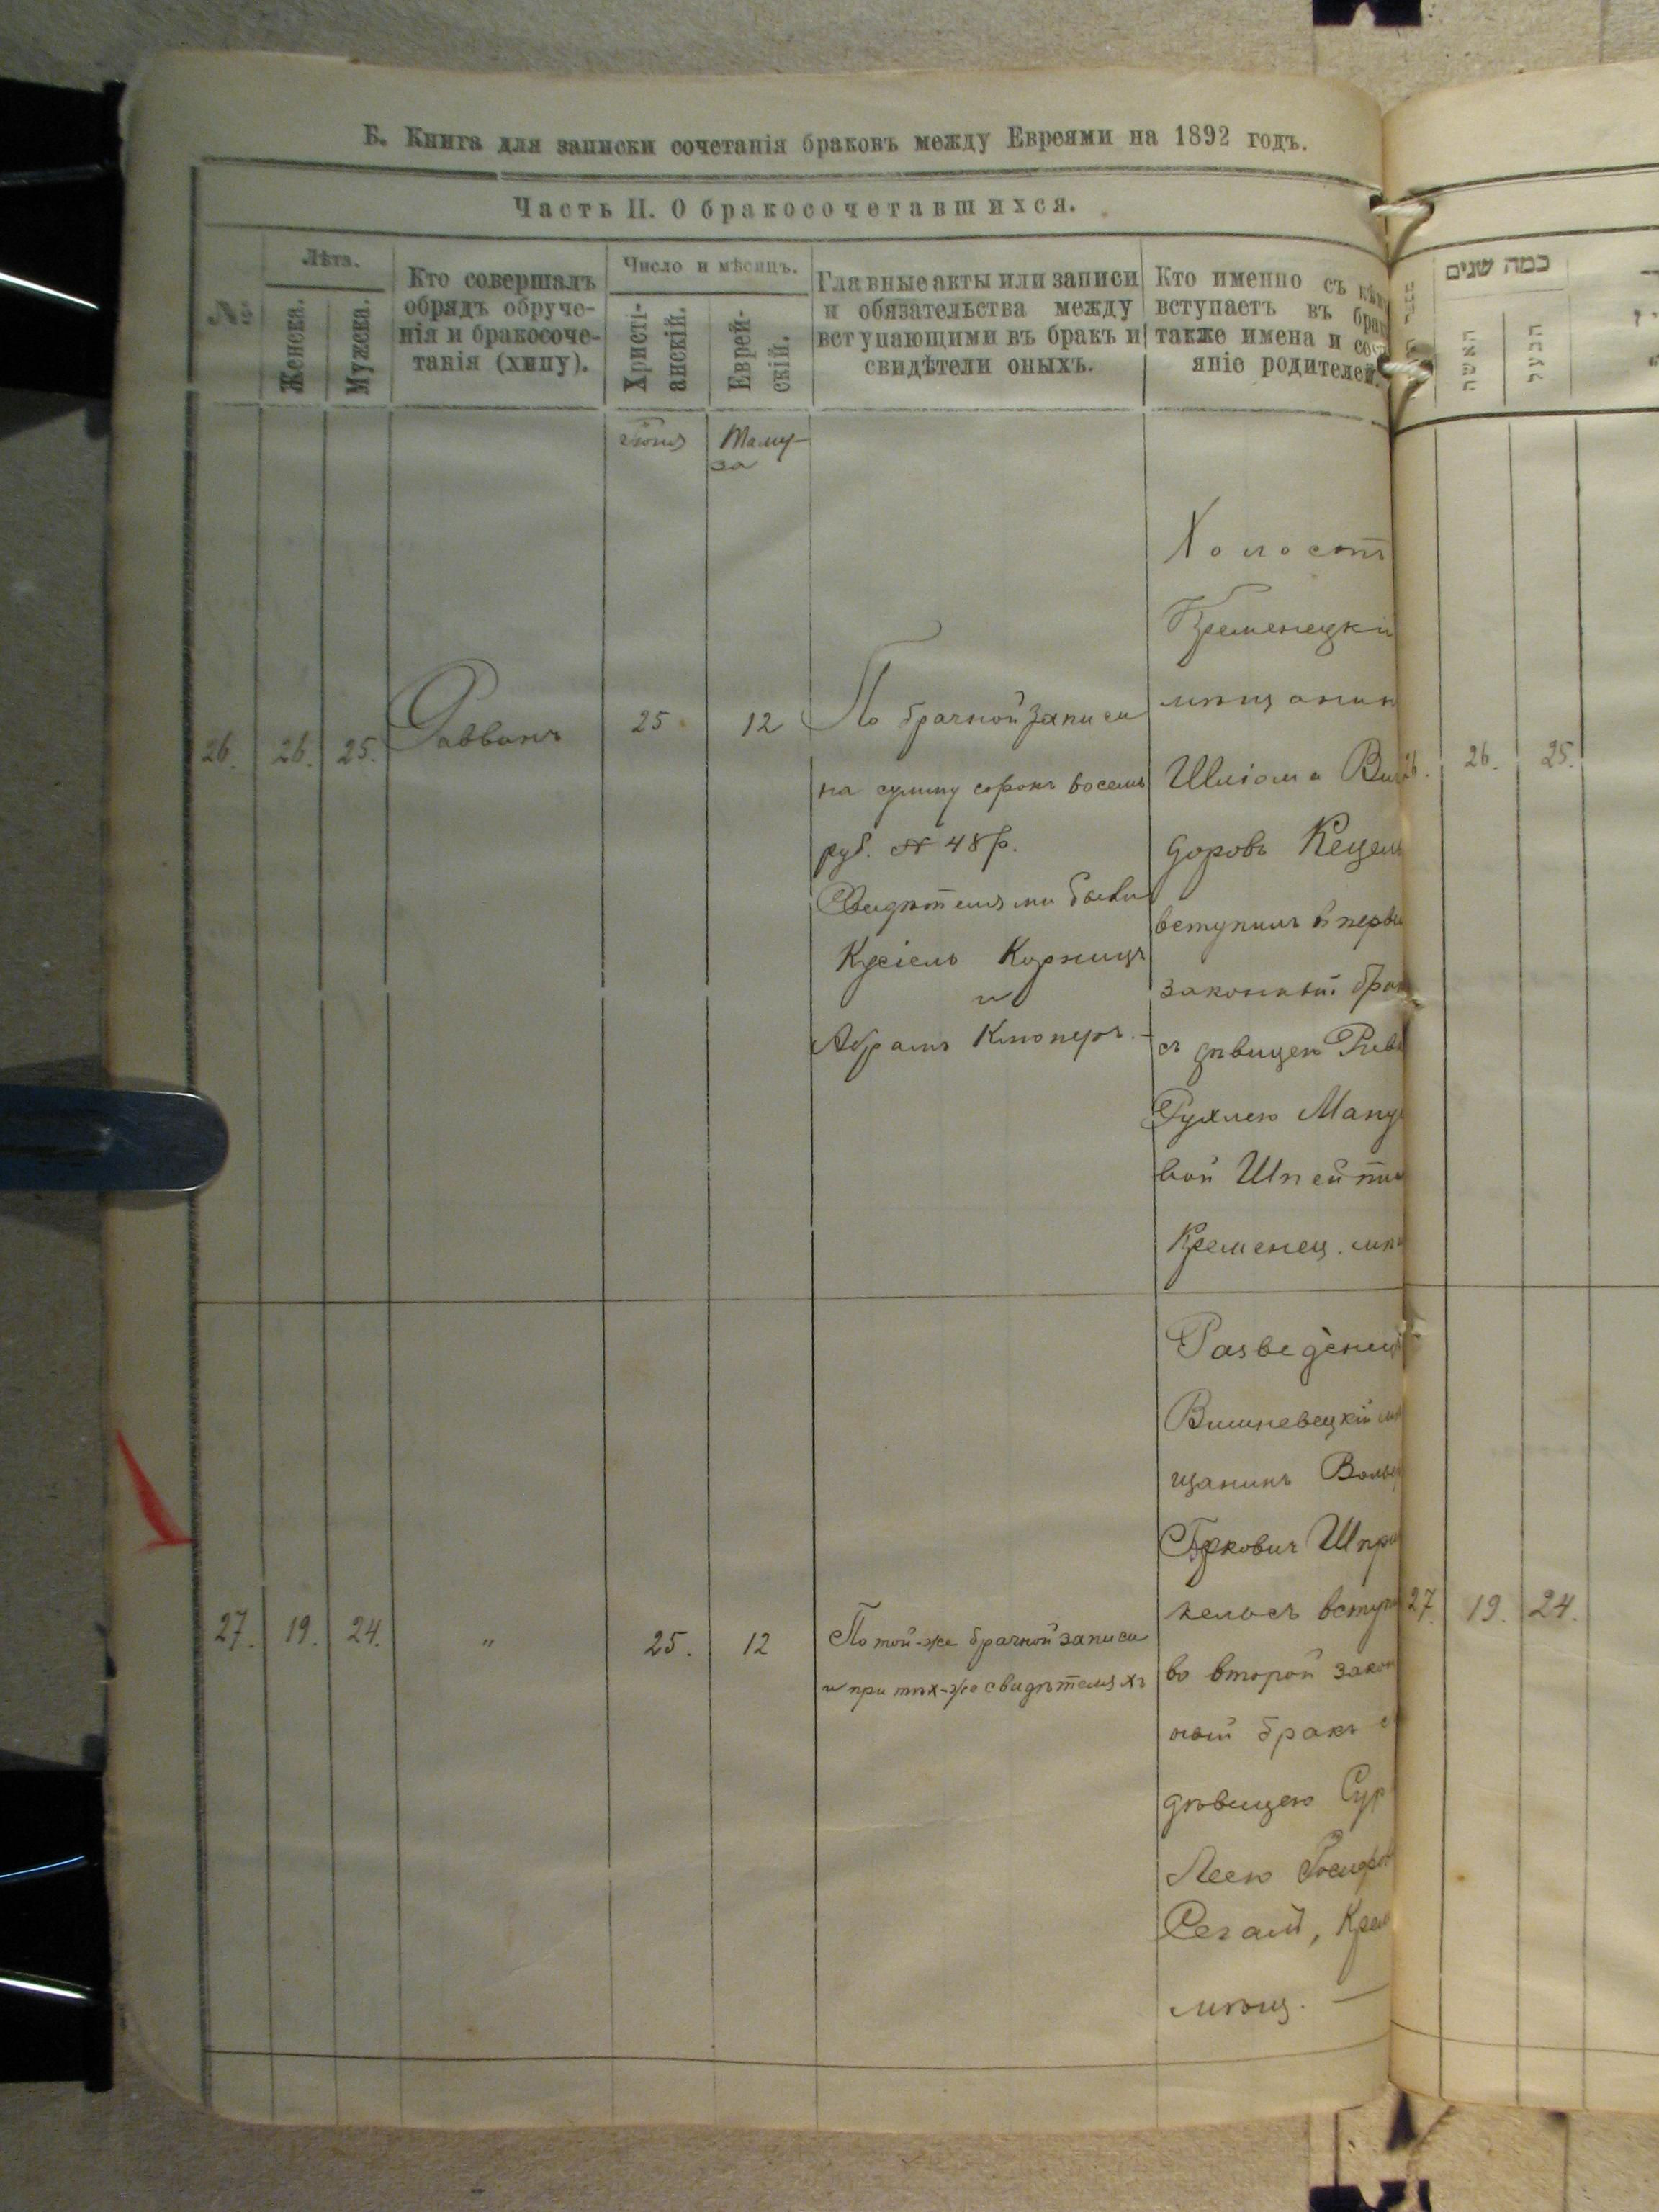 Б. Книга для записки сочетанія браковъ между Евреями на 1892 годъ.
Часть II. О бракосочетавшихся.
№
Лѣта.
Женска.
Мужска.
Кто совершалъ
обрядъ обруче-
нія и бракосоче-
танія (хипу).
Число и мѣсяцъ.
Христі-
анскій.
Еврей-
скій.
Главные акты или записи
и обязательства между
вступающими въ бракъ и
свидѣтели оныхъ.
Кто именно съ
вступаетъ въ
также имена и
яніе родителей.
כמה שנים
האשה
הבעל
Іюня
Таму-
за
26.
26.
25.
Раввинъ
25
12
По брачной записи
на сумму сорокъ восемь
руб. № 48 р.
Свидѣтелями были
Кусіель Корницъ
и
Абрамъ Клоперъ. -
Холостъ
Кременецкій
мѣщанин
Шліома
доровъ Кецель
вступилъ въ
законный брак
съ дѣвицею
Рухлею
вой
Кременец.
26.
26.
25.
27.
19.
24.
"
25.
12
По той-же брачной записи
и при тѣх-же свидѣтелях
Разведенецъ
Вишневецкій мѣ
щанинъ
Берковичъ
вступ
во второй закон
ный бракъ с
дѣвицею Сур
Леею
Сегалъ, Крем
мѣщ. —
27.
19.
24.